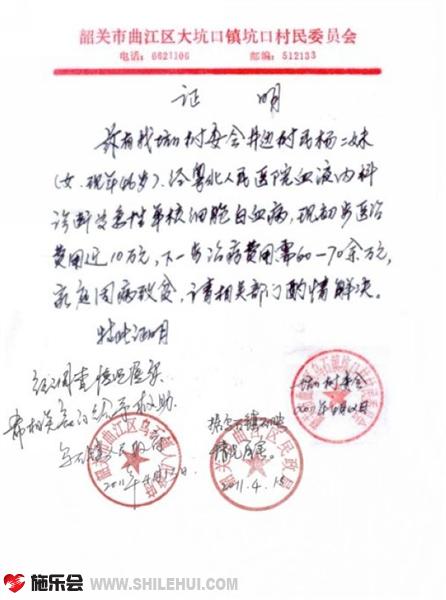 韶关市曲江区大坑口镇坑口村民委员会
电话：6621106 邮编：512133
证 明
兹有我坑口村委会井边村民杨二妹
(女、现年46岁)、经粤北人民医院血液内科
诊断为急性单核细胞白血病，现初步医治
费用近10万元，下一步治病费用需60—70余万元，
家庭因病致贫，请相关部门酌情解决。
特此证明
坑口村委会
2011年4月12日
经调查情况属实
希相关部门给予救助
乌石镇人民政府
2011年4月12日
情况属实
2011.4.15
施乐会 www.SHILEHUI.COM